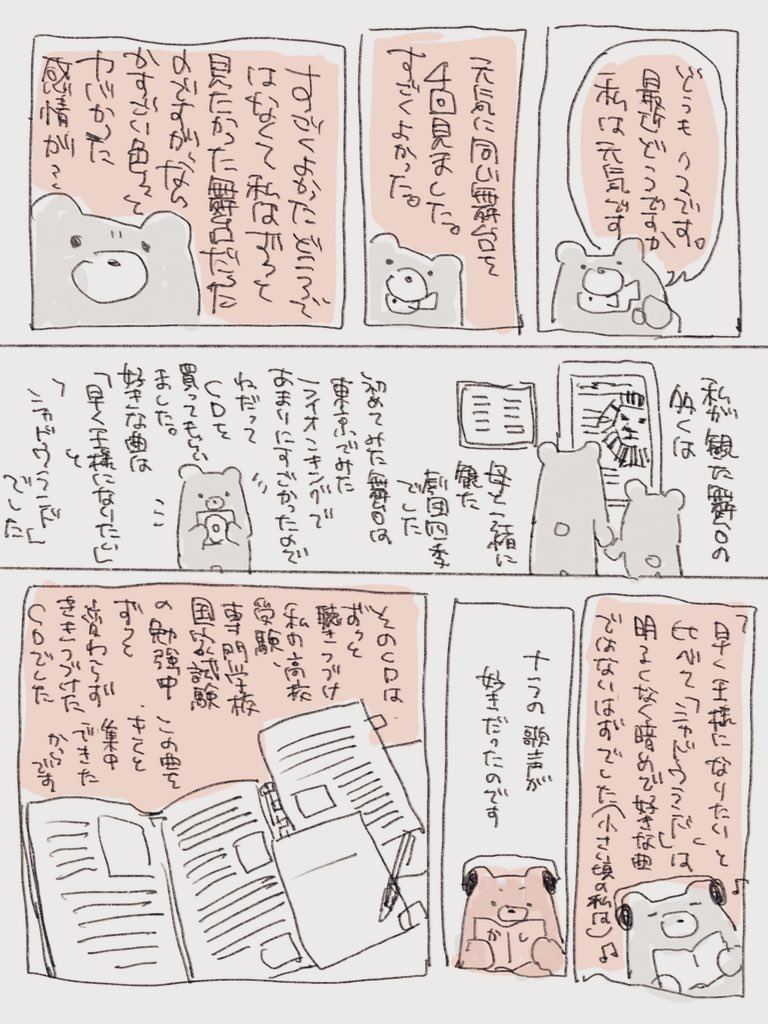 どうも クスです。
最近どうですか
私は元気です
元気に同じ舞台を
4回見ました。
すごくよかった。
すごくよかったどころで
はなくて私はずっと
見たかった舞台だった
のですが、なん
かすごい色々と
ヤバかった
感情が?
私が観た舞台の
多くは
母と一緒に
観た
劇団四季
でした
初めてみた舞台は
東京でみた
ライオンキングで
あまりにすごかったので
ねだって
CDを
買ってもらい
ました。
好きな曲は
「早く王様になりたい」
と
「シャドウランド」
でした
「早く王様になりたい」と
比べて「シャドウランド」は
明るくなく暗めで好きな曲
ではないはずでした(小さい頃の私は)
ナラの歌声が
好きだったのです
かし
そのCDは
ずっと
聴きつづけ
私の高校
受験、
専門学校
国家試験
の勉強中
ずっと
変わらず
ききつづけた
CDでした
この曲を
きくと
集中
できた
からです